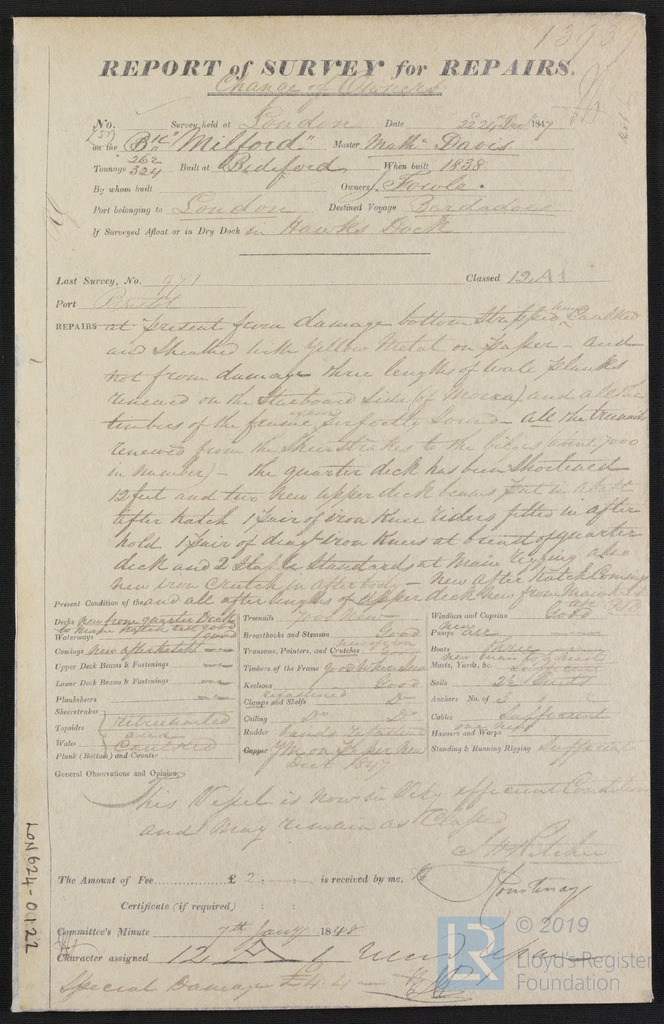 REPORT of SURVEY for REPAIRS.
Change of Owners
No. Survey held at London Date 22 24 Dec 1847
on the Bk "Milford" Master Matth Davis
Tonnage 262 324 Built at Bideford When built 1838
By whom built Owners Fowle.
Port belonging to London Destined Voyage Barbadoes
If Surveyed Afloat or in Dry Dock in Hawks Dock
Last Survey, No. 971 Classed 12 A1
Port Bristol
REPAIRS at present from damage bottom Stripped Caulked
and Sheathed with Yellow Metal on paper - and
not from damage three lengths of wale planks
renewed on the Starboard side (of Morra) and all the
timbers of the frame perfectly sound - all the treenails
renewed from the Sheerstrakes to the bilges (about 7000
in number) - the quarter deck has been Shortened
12 feet and two new upper deck beams put in abaft
after hatch 1 pair of iron Knee riders fitted in after
hold 1 pair of diagl iron Knees at breast of quarter
deck and 2 Staple Standards at Main rigging also
new iron Crutch in after body - new After hatch Comings
and all after lengths of upper deck new from main hatch
Present Condition of the
Decks new from quarter Deck
to main hatch rest good
Waterways good
Comings new after hatch
Upper Deck Beams & Fastenings
Lower Deck Beams & Fastenings
Planksheers
Sheerstrakes
Topsides
Wales
Plank (Bottom) and Counter
and
Caulked
Treenails 7000 New
Breasthooks and Stemson Good
Transoms, Pointers, and Crutches
Timbers of the Frame good where seen
Keelsons Good
Clamps and Shelfs Do
Ceiling Do Do
Rudder
Copper YM on paper New
Dect 1847
Windlass and Capstan Good
Pumps new
Boats
Masts, Yards, &c.
Sails
Anchors No. of 3
Cables Sufficient
Hawsers and Warps
Standing & Running Rigging Sufficient
General Observations and Opinion
This Vessel is now in Very efficient Condition
and may remain as Classed
The Amount of Fee £ 2 is received by me.
Courtenay
Certificate (if required) : :
Committee's Minute 7th Jany 1848
Character assigned 12 A
Special Damage £4.4
LON624-0122
LR
© 2019
Lloyd's Register
Foundation